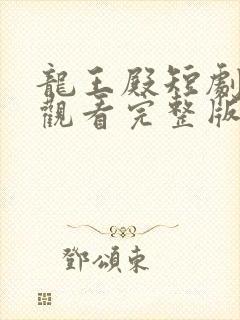 龍王殿短劇
觀看完整版
鄧頌東